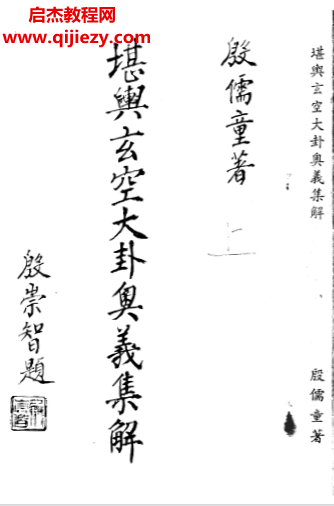 启杰教程网
www.qijiezy.com
堪輿玄空大卦奥義集解
殷儒童著
上
殷儒童著
堪輿玄空大卦奥義集解
殷崇智題